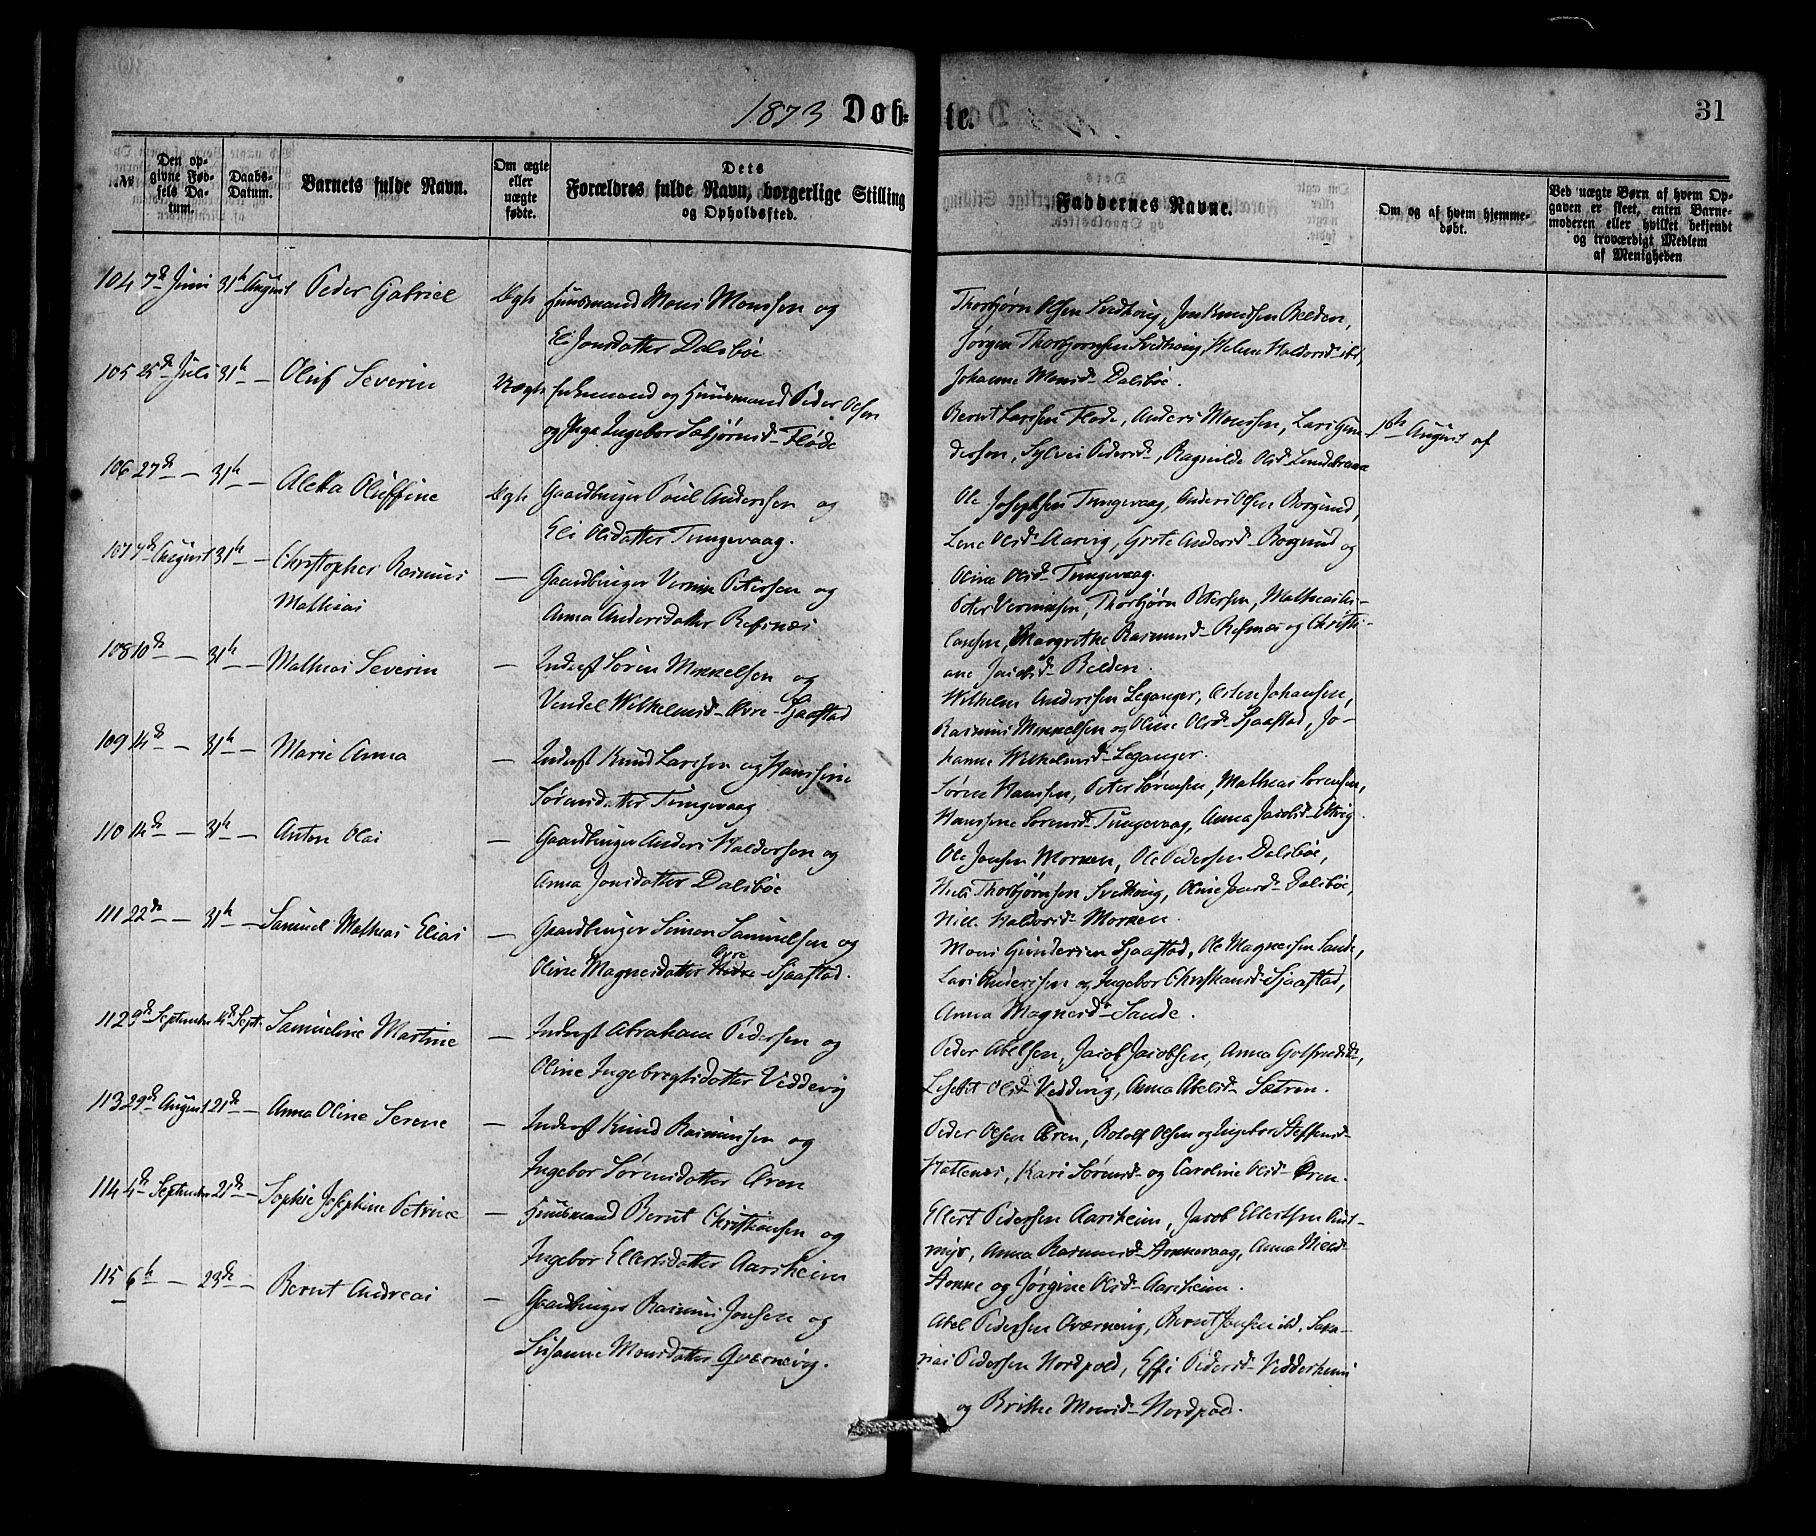 1873 Døbte. 31
№ Den opgivne Fødsels Datum. Daabs-Datum. Barnets fulde Navn. Om ægte eller uægte fødte. Dets Forældres fulde Navn, borgerlige Stilling og Opholdssted. Faddernes Navne. Om og af hvem hjemmedøbt. Ved uægte Børn af hvem Opgaven er skeet, enten Barnemoderen eller hvilket bekjendt og troværdigt Medlem af Menigheden
104 7de Juni 31te August Peder Gabriel Ægte Huusmand Mons Monssen og
Eli Jonsdatter Dalsbøe
Thorbjørn Olsen Svidthoug, Jon Knudsen Relden,
Jørgen Thorbjørnsen Svidthoug, Helene Haldorsd ibd,
Johanne Monsd Dalsbøe.
105 25de Juli 31te — Oluf Severin Uægte Huusmand Peder Olsen
og Inga Ingebor Fløde
Bernt Larssen Fløde, Anders Monssen, Lars
Sylvei Pedersd, Ragnilde Olsd
1ste August af
106 27de — 31te — Aletta Oluffine Ægte Gaardbruger Poul Anderssen og
Eli Olsdatter Tungevaag.
Ole Josephsen Tungevaag, Anders Olsen Borgund,
Lene Olsd Aarvig, Grete Andersd Borgund og
Oline Olsd Tungevaag.
107 7de August 31te — Christopher Rasmus
Mathias — Gaardbruger Petersen og
Anna Andersdatter Refsnæs
Thorbjørn Petersen, Mathias As-
lansen, Margrethe Rasmusd Refsnæs og Christi-
ane Jacobsd Relden.
108 10de — 31te — Mathias Severin — Inderst Søren Mikkelsen og
Vendel Wilhelmsd Øvre Sjaastad
Wilhelm Anderssen Leganger, Johansen,
Rasmus Mikkelsen og Oline Olsd Sjaastad, Jo-
hanne Wilhelmsd Leganger.
109 14de — 31te — Marie Anna — Inderst Knud Larssen og Hanssine
Sørensdatter Tungevaag
Søren Hanssen, Peter Sørensen, Mathias Sørensen,
Hanssine Sørensd Tungevaag, Anna Jacobsd
110 14de — 31te — Anton Olai — Gaardbruger Anders Haldorssen og
Anna Jonsdatter Dalsbøe
Ole Jonsen Morken, Ole Pedersen Dalsbøe,
Niels Thorbjørnsen Svidthoug, Oline Jonsd Dalsbøe,
Haldorsd Morken.
111 22de — 31te — Samuel Mathias Elias — Gaardbruger Simon Samuelsen og
Oline Magnesdatter Øvre Sjaastad.
Mons Gundersen Sjaastad, Ole Magnessen Sande,
Lars Anderssen og Ingebor Christiansd Sjaastad,
Anna Magnesd Sande.
112 9de September 14de Sept. Samueline Martine — Inderst Abraham Pedersen og
Oline Ingebregtsdatter Veddevig
Peder Abelsen, Jacob Jacobsen, Anna
Lisebet Olsd Veddevig, Anna Abelsd Sætren.
113 29de August 21de — Anna Oline Serene — Inderst Knud Rasmussen og
Ingebor Sørensdatter Øren
Peder Olsen Øren, Rotolf Olsen og Ingebor Steffensd
Hattenæs, Kari Sørensd og Caroline Olsd Øren.
114 4de September 21de — Sophie Josephine Petrine — Huusmand Bernt Christiansen og
Ingebor Ellertsdatter Aarsheim
Ellert Pedersen Aarsheim, Jacob Ellertsen Aust-
myr, Anna Rasmusd Anna Nielsd
Stonne og Jørgine Olsd Aarsheim.
115 6te — 23de — Bernt Andreas — Gaardbruger Rasmus Jonsen og
Susanne Monsdatter Qværnevig.
Abel Pedersen Qværnevig, Bernt Jonsen ibd, Saka-
rias Pedersen Nordpold, Effi Pedersd Vedderheim
og Brithe Monsd Nordpold.